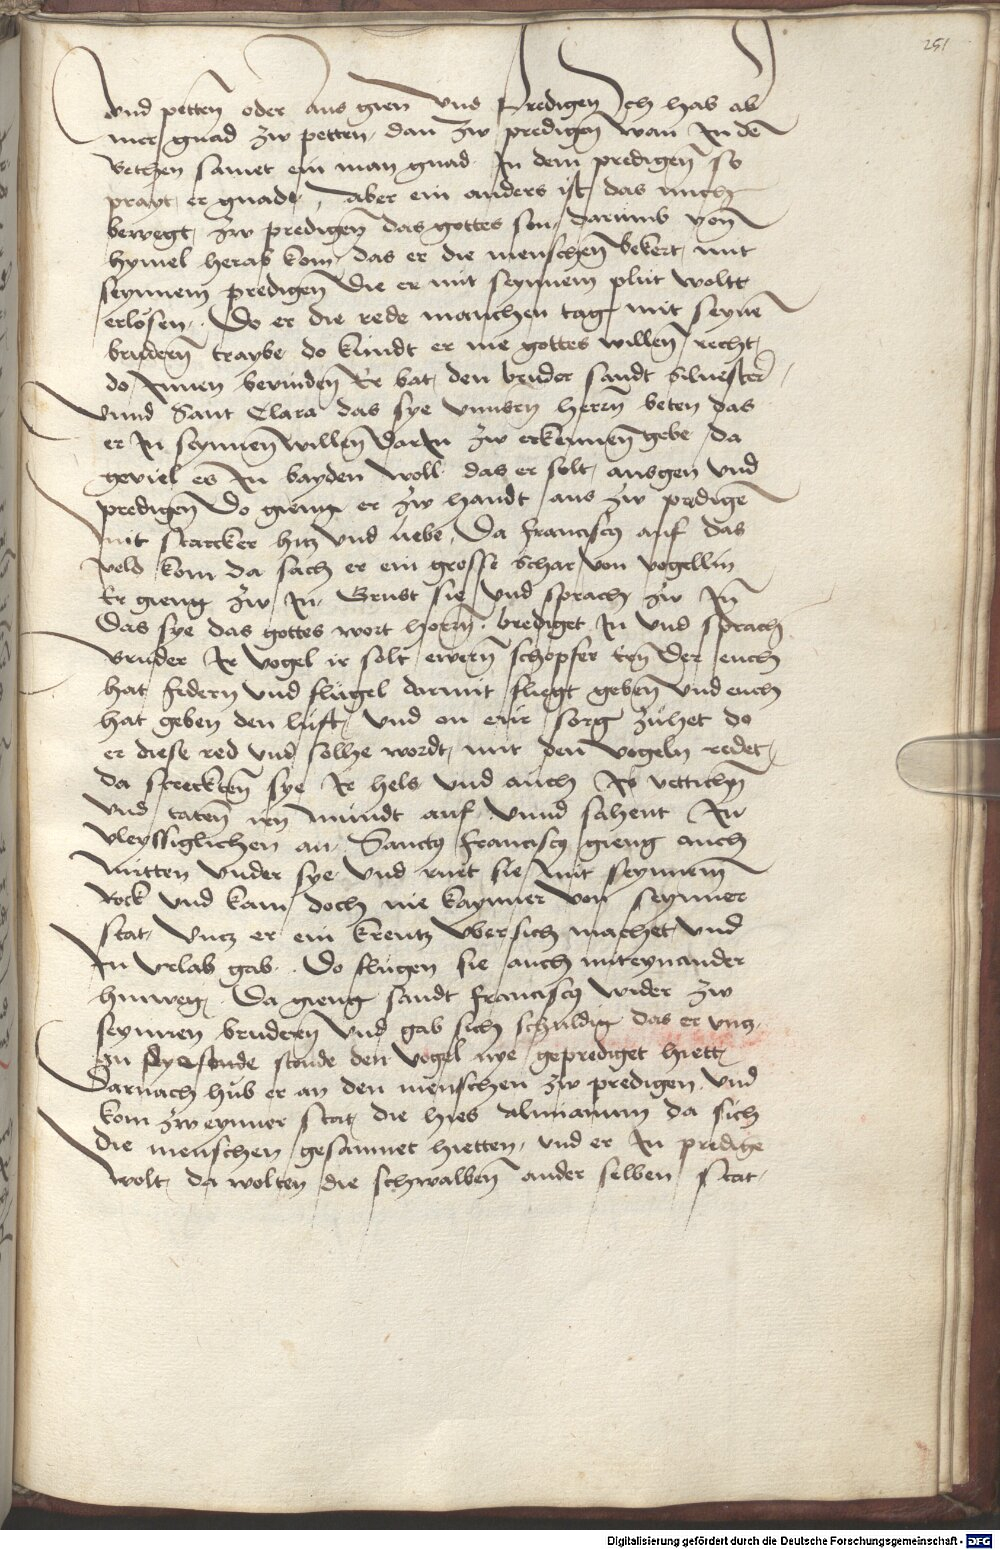 251
vnd petten oder aus gien vnd predigen Ich hab ab
mer gnad zw petten, dan zw predigen wan In de
bethen samet ein man gnad In dem predigen so
prayt er gnade, aber ein anders ist das mich
bewegt zw predigen das gottes son darumb von
hymel herab kom das er die menschen bekert mit
seynnem predigen die er mit seynnem plut woltt
erlösen. Do er die rede manchen tag mit seyne
brudern traybe do kundt er nie gottes willen recht
do Innen bevinden Er bat den bruder sandt Siluester
vnnd Sant Clara das sye vnnsern herrn beten das
er In seynnen willen darIn zw erkennen gebe, da
geviel es In bayden woll das er solt ausgen vnd
predigen Do gieng er zw handt aus zw predige
mit starcker hitz vnd liebe, Da Franciscus auf das
veld kom da sach er ein grosse schar von vogellin
Er gieng zw In, Grust sie vnd sprach zw In
Das sye das gottes wort horrn. brediget In vnd sprach
bruder Ir vogel ir solt ewern schopfer ern Der euch
hat federn vnd flugel darmit fliegt geben vnd euch
hat geben den luft, vnd on eur sorg zuhet do
er diese red vnd solhe wordt mit den vogeln redet
da streckten sye Ir hels vnd auch Ir vettichen
vnd taten iren mundt auf vnnd sahent In
vleyssiglichen an. Sanctus Franciscus gieng auch
mitten vnder sye vnd ruet sie mit seynnem
Rock vnd kam doch nie kaynner von seynner
stat, vncz er ein Kreutz vber sich machet vnd
In vrlab gab. Do flugen sie auch miteynander
hinweg. Da gieng sandt Franciscus wider zw
seynnen brudern vnd gab sich schuldig das er vncz
zu stunde den vogel nye geprediget hiett
Darnach hub er an den menschen zw predigen vnd
kom zw eynner stat die hies almanum da sich
die menschen gesamnet hietten, vnd er In predige
wolt, da wolten die schwalben ander selben stat
Digitalisierung gefördert durch die Deutsche Forschungsgemeinschaft - DFG